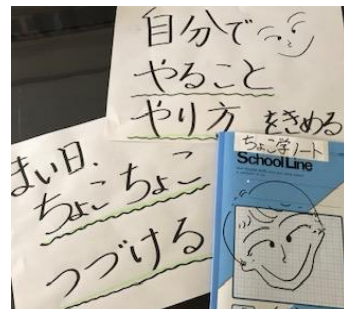 自分で
やること
やり方 をきめる
まい日、
ちょこちょこ
つづける
ちょこ学ノート
School Line